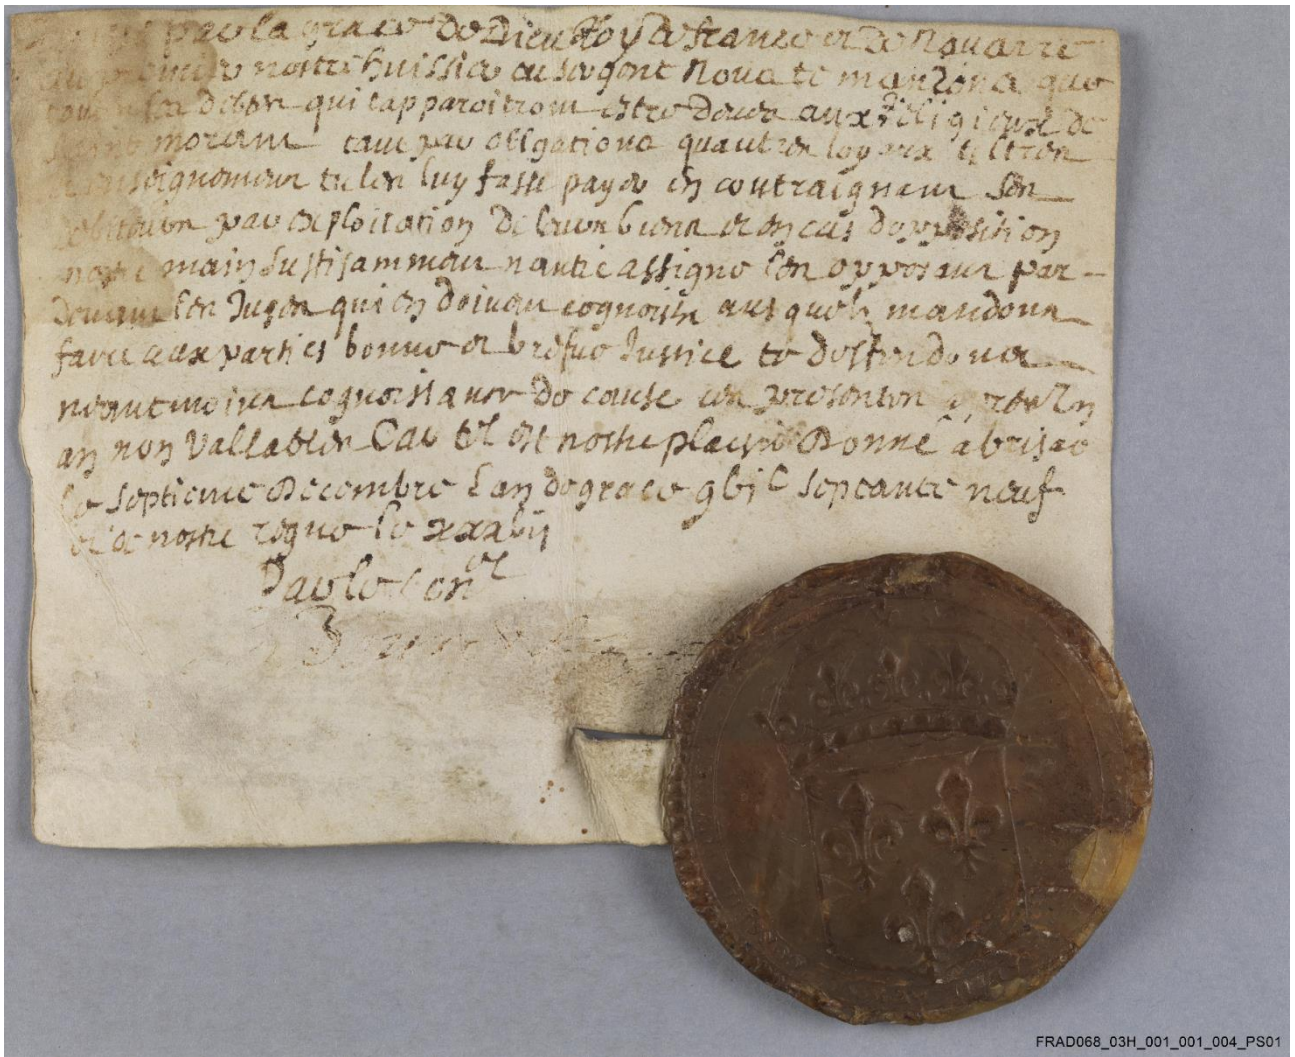 par la grace de Dieu Roy de france et de Navarre
nostre huissier ou sergent Nous te mandons que
debtes qui t'apparoitront estre deues aux Religieux de
morand tant par obligations quautres loyaux tiltres
enseignemens tu les luy fasse payer en contraignant ses
debiteurs par exploitation de leurs biens et en cas dopposition
nostre main suffisammant nantie assigne les opposans par
devant les Juges qui en doivent cognoistre ausquels mandons
faire aux parties bonne et brefve Justice te deffendons
neantmoins cognoissance de cause ces presentes apres un
an non vallables Car tel est nostre plaisir Donné à brisac
le septieme Decembre l'an de grace gbjᶜ septante neuf
et de nostre regne le xxxbij
Par le Conᵉˡ
FRAD068_03H_001_001_004_PS01